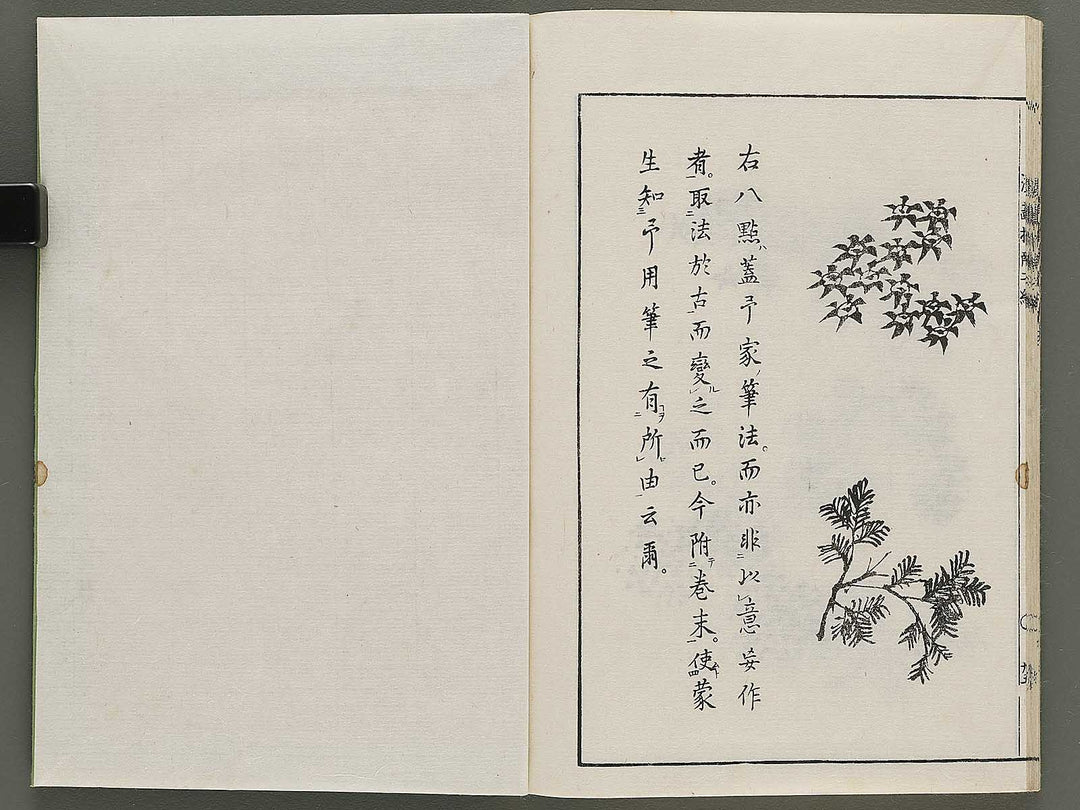 右八點蓋予家筆法。而亦非以意妄作
者。取法於古而變之而已。今附卷末。使蒙
生知予用筆之有所由云爾。